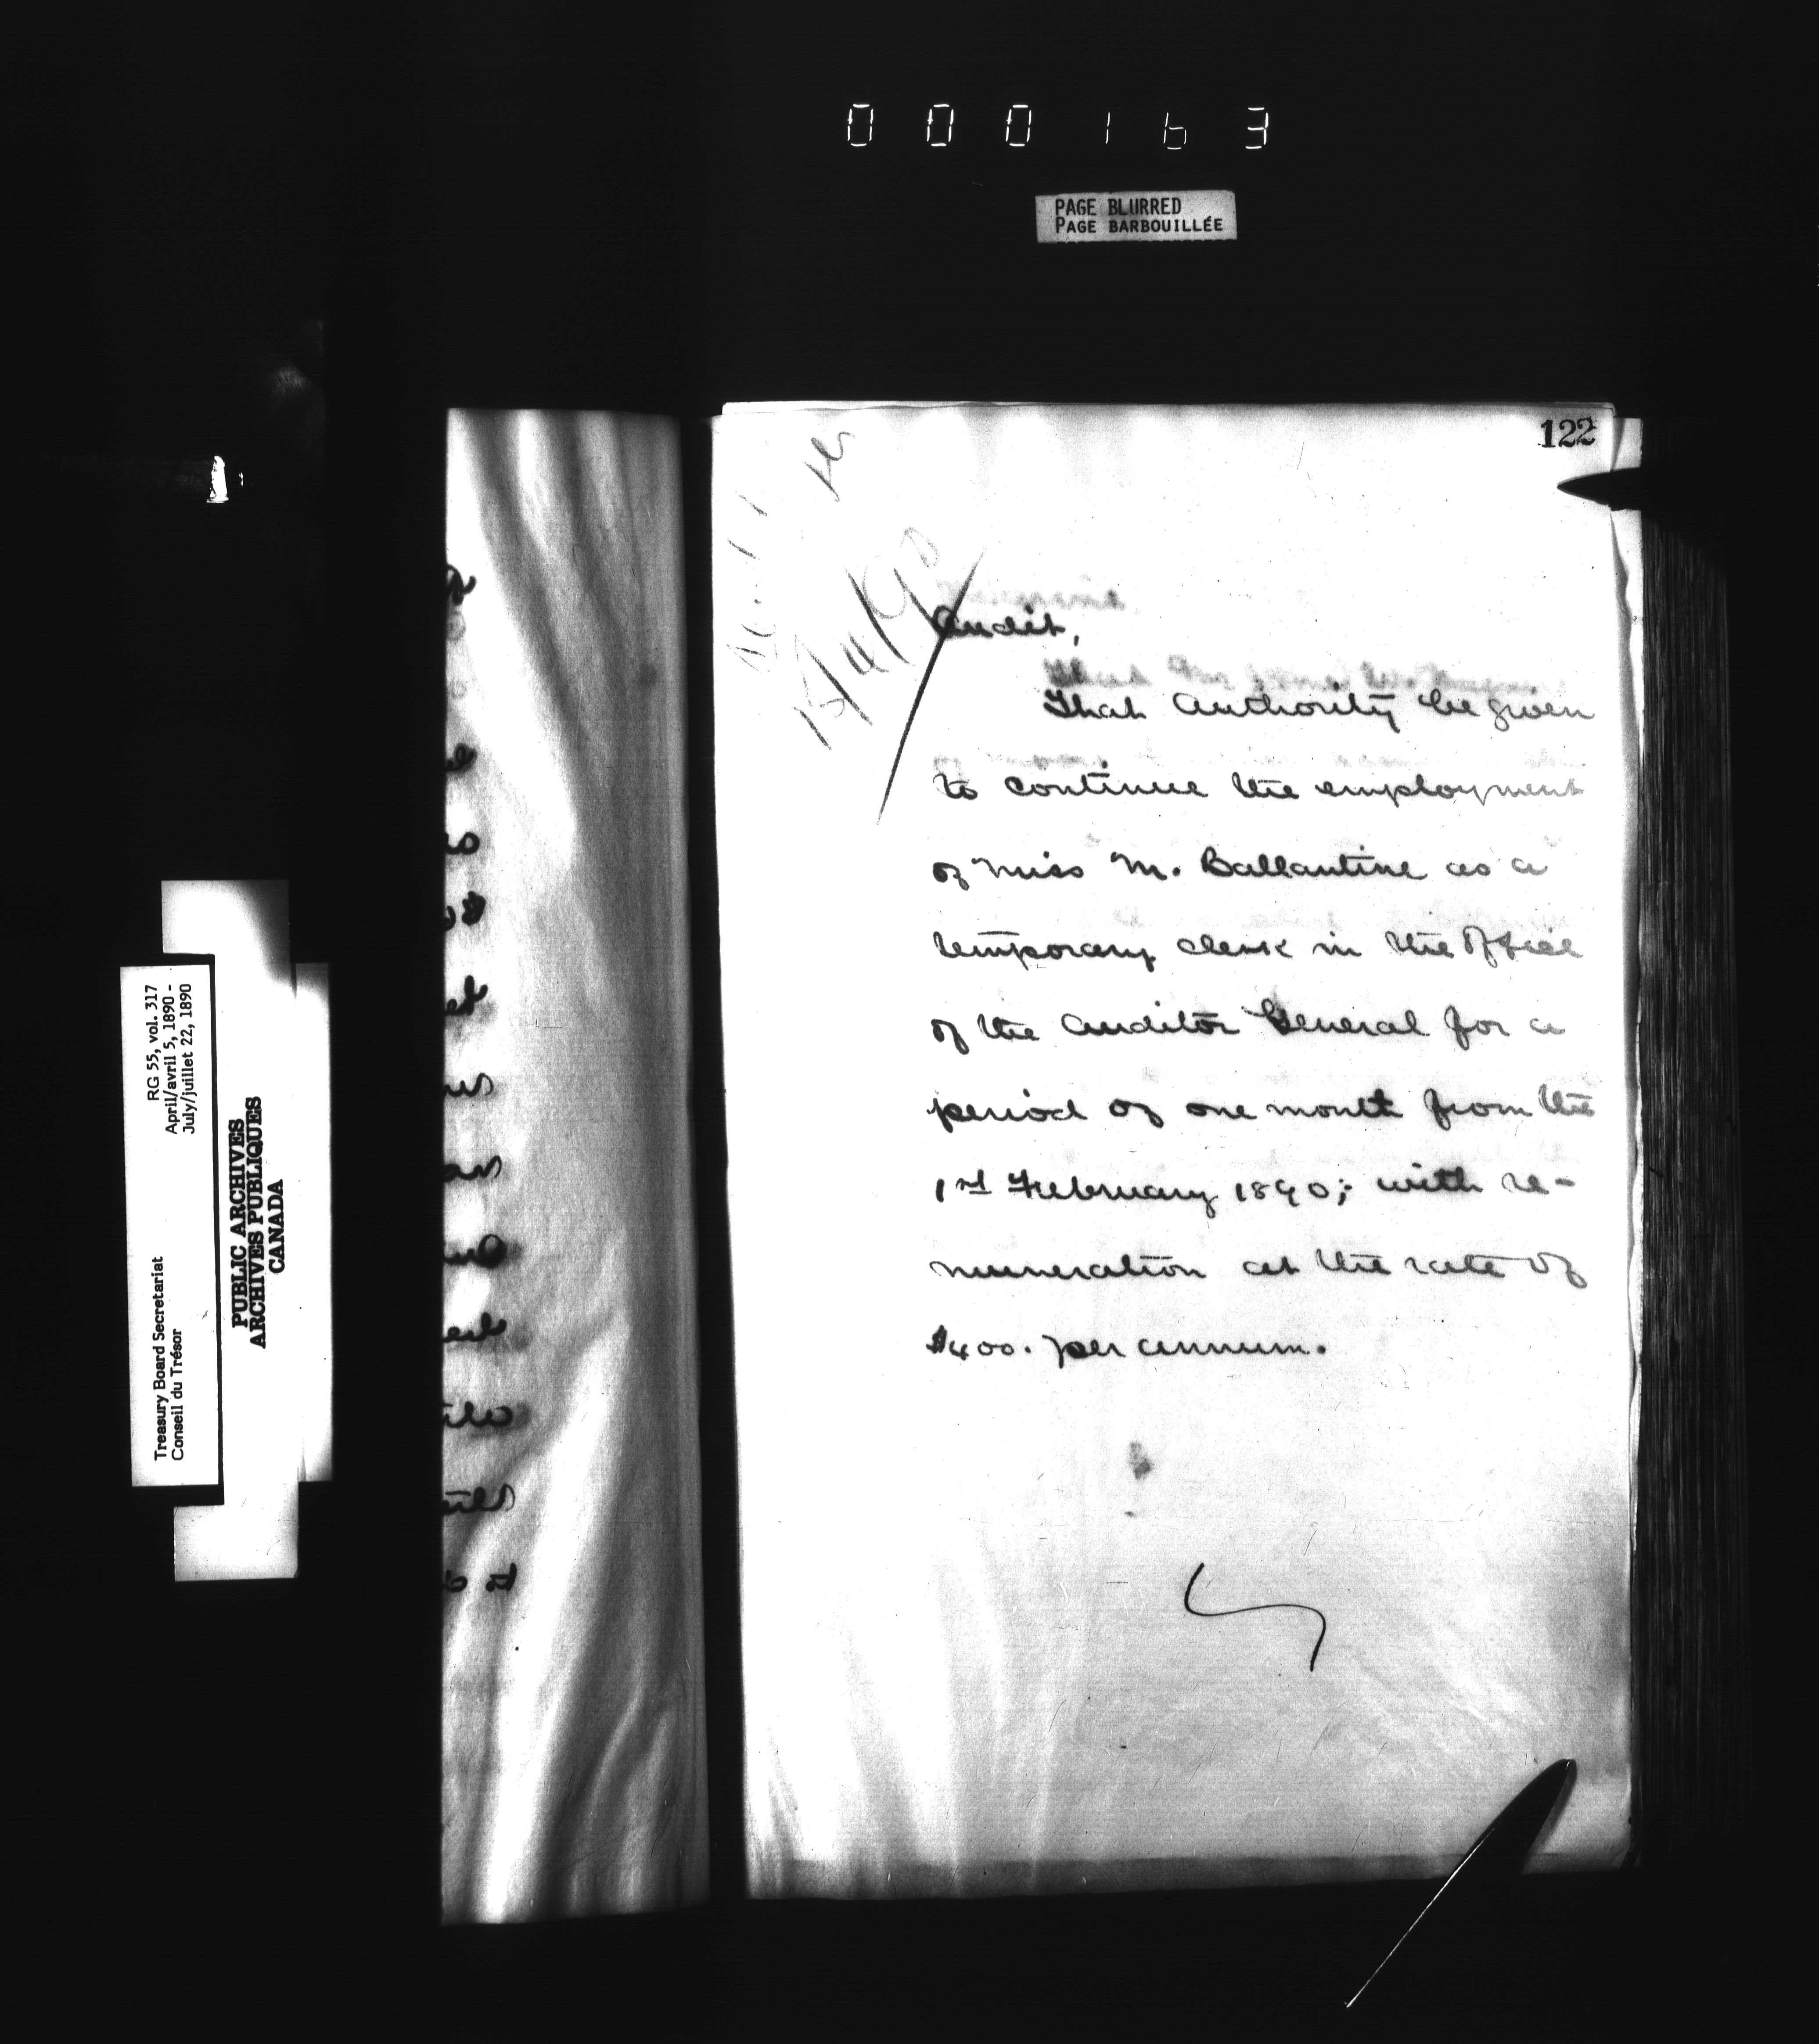 000163
PAGE BLURRED
PAGE BARBOUILLÉE
122
15/4/90
Audit,
That Authority be given
to continue the employment
of Miss M. Ballantine as a
temporary clerk in the Office
of the Auditor General for a
period of one month from the
1st February 1890; with re-
muneration at the rate of
$400. per annum.
RG 55, vol. 317
April/avril 5, 1890 -
July/juillet 22, 1890
Treasury Board Secretariat
Conseil du Trésor
PUBLIC ARCHIVES
ARCHIVES PUBLIQUES
CANADA